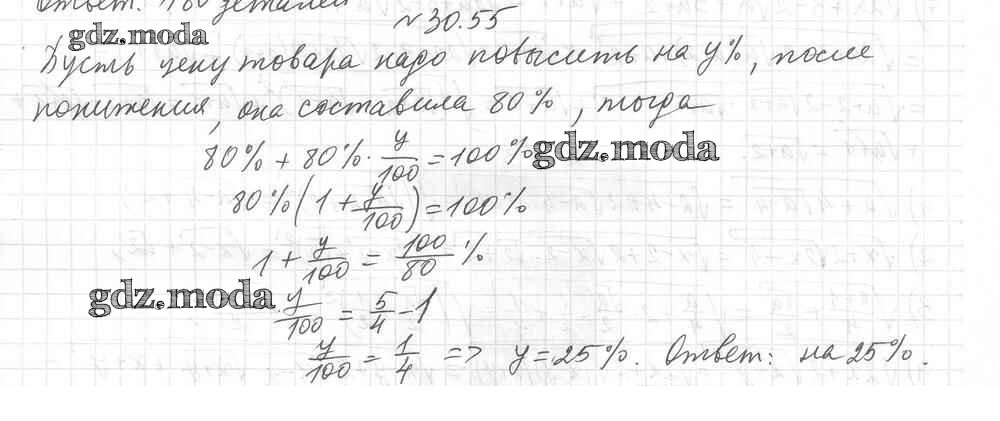 Ответ: 180 деталей
№30.55
gdz.moda
Пусть цену товара надо повысить на y%, после
понижения, она составила 80%, тогда
80% + 80% · y/100 = 100%
gdz.moda
80% (1 + y/100) = 100%
1 + y/100 = 100/80 %
gdz.moda
y/100 = 5/4 - 1
y/100 = 1/4 => y = 25%. Ответ: на 25%.